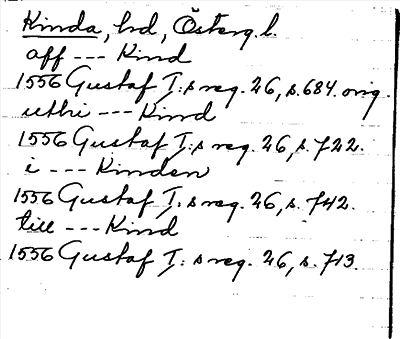 Kinda, hd, Österg. l.
aff --- Kind
1556 Gustaf I:s reg. 26, s. 684. orig.
uthi --- Kind
1556 Gustaf I:s reg. 26, s. 722.
i --- Kinden
1556 Gustaf I:s reg. 26, s. 742.
till --- Kind
1556 Gustaf I:s reg. 26, s. 713.